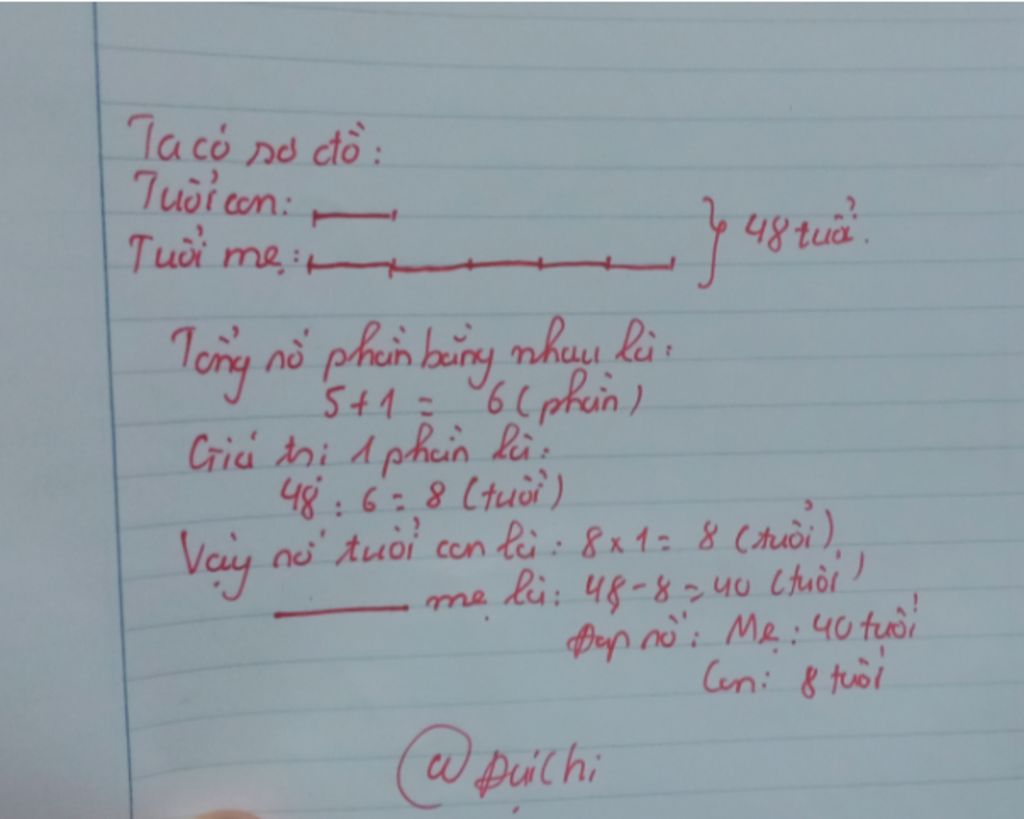 Ta có sơ đồ:
Tuổi con:
Tuổi mẹ:
48 tuổi.
Tổng số phần bằng nhau là:
5+1 = 6 (phần)
Giá trị 1 phần là:
48 : 6 = 8 (tuổi)
Vậy số tuổi con là: 8 x 1 = 8 (tuổi)
mẹ là: 48 - 8 = 40 (tuổi)
Đáp số: Mẹ: 40 tuổi
Con: 8 tuổi
@ Đại Chi